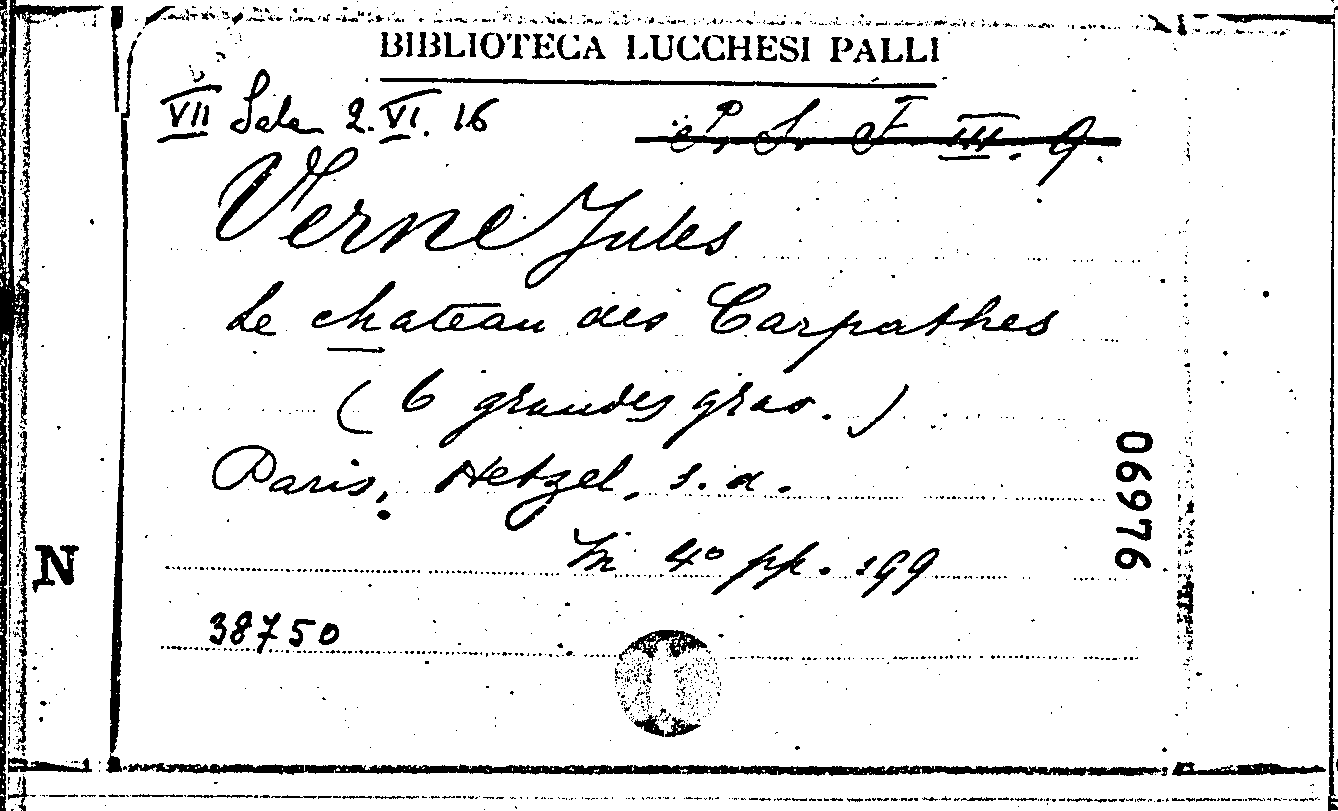 BIBLIOTECA LUCCHESI PALLI
VII Sala 2. VI. 16
P. S. F III. 9.
Verne Jules
Le chateau des Carpathes
( 6 grandes grav. )
Paris, Hetzel, s. d.
In 4º pp. 199
38750
06976
N